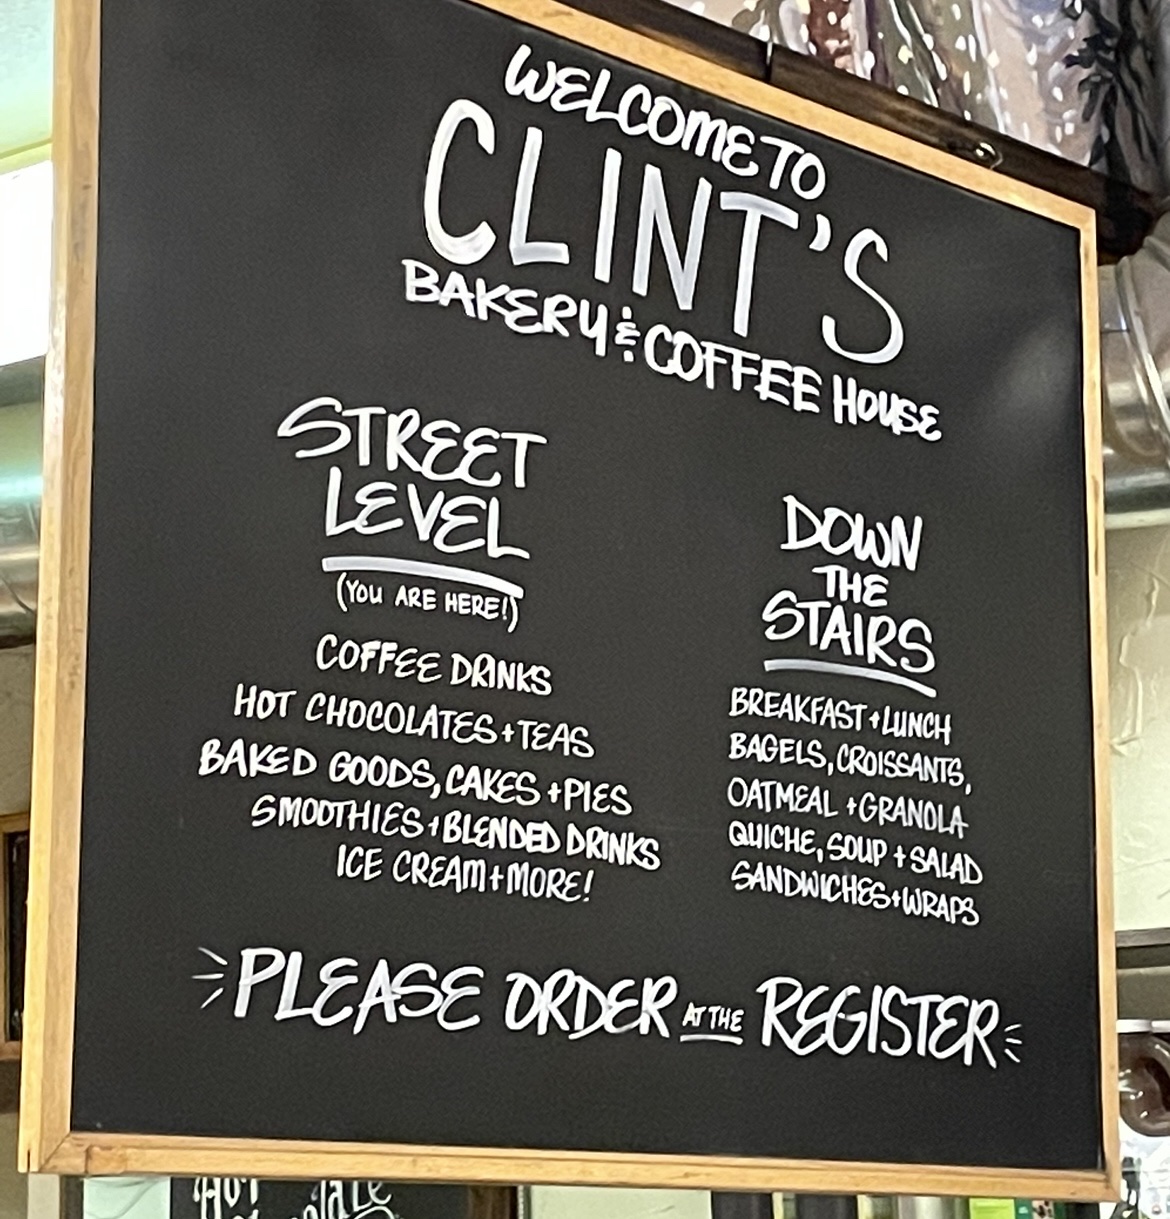 WELCOME TO
CLINT'S
BAKERY & COFFEE HOUSE
STREET
LEVEL
(YOU ARE HERE!)
COFFEE DRINKS
HOT CHOCOLATES + TEAS
BAKED GOODS, CAKES + PIES
SMOOTHIES + BLENDED DRINKS
ICE CREAM + MORE!
DOWN
THE
STAIRS
BREAKFAST + LUNCH
BAGELS, CROISSANTS,
OATMEAL + GRANOLA
QUICHE, SOUP + SALAD
SANDWICHES + WRAPS
PLEASE ORDER AT THE REGISTER
HOT